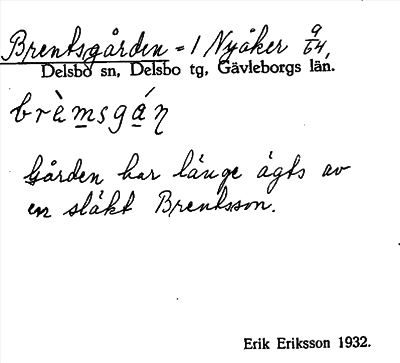 Brentsgården = 1 Nyåker 9/64,
Delsbo sn, Delsbo tg, Gävleborgs län.
brèmsgáɳ
Gården har länge ägts av
en släkt Brentsson.
Erik Eriksson 1932.